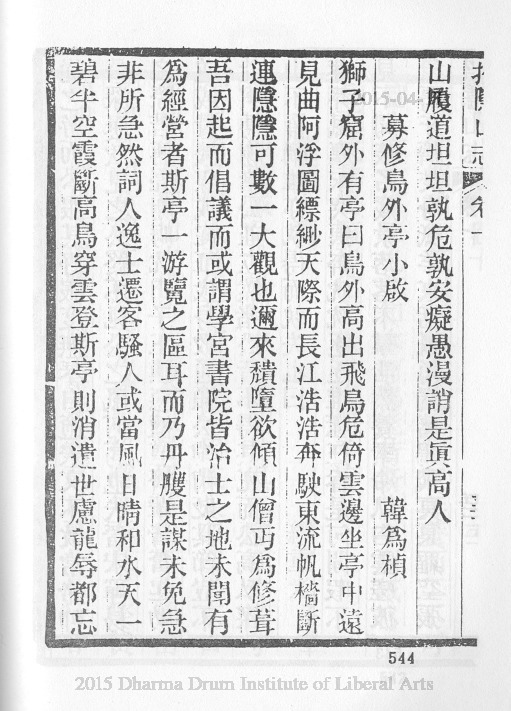 招隱山志　卷十
山履道坦坦孰危孰安癡愚漫誚是眞高人
募修鳥外亭小啟　韓爲楨
獅子窟外有亭曰鳥外高出飛鳥危倚雲邊坐亭中遠
見曲阿浮圖縹緲天際而長江浩浩奔駛東流帆檣斷
連隱隱可數一大觀也邇來穨墮欲傾山僧丐爲修葺
吾因起而倡議而或謂學宮書院皆治士之地未聞有
爲經營者斯亭一游覽之區耳而乃丹艧是謀未免急
非所急然詞人逸士遷客騷人或當風日晴和水天一
碧半空霞斷高鳥穿雲登斯亭則消遣世慮寵辱都忘
544
2015 Dharma Drum Institute of Liberal Arts